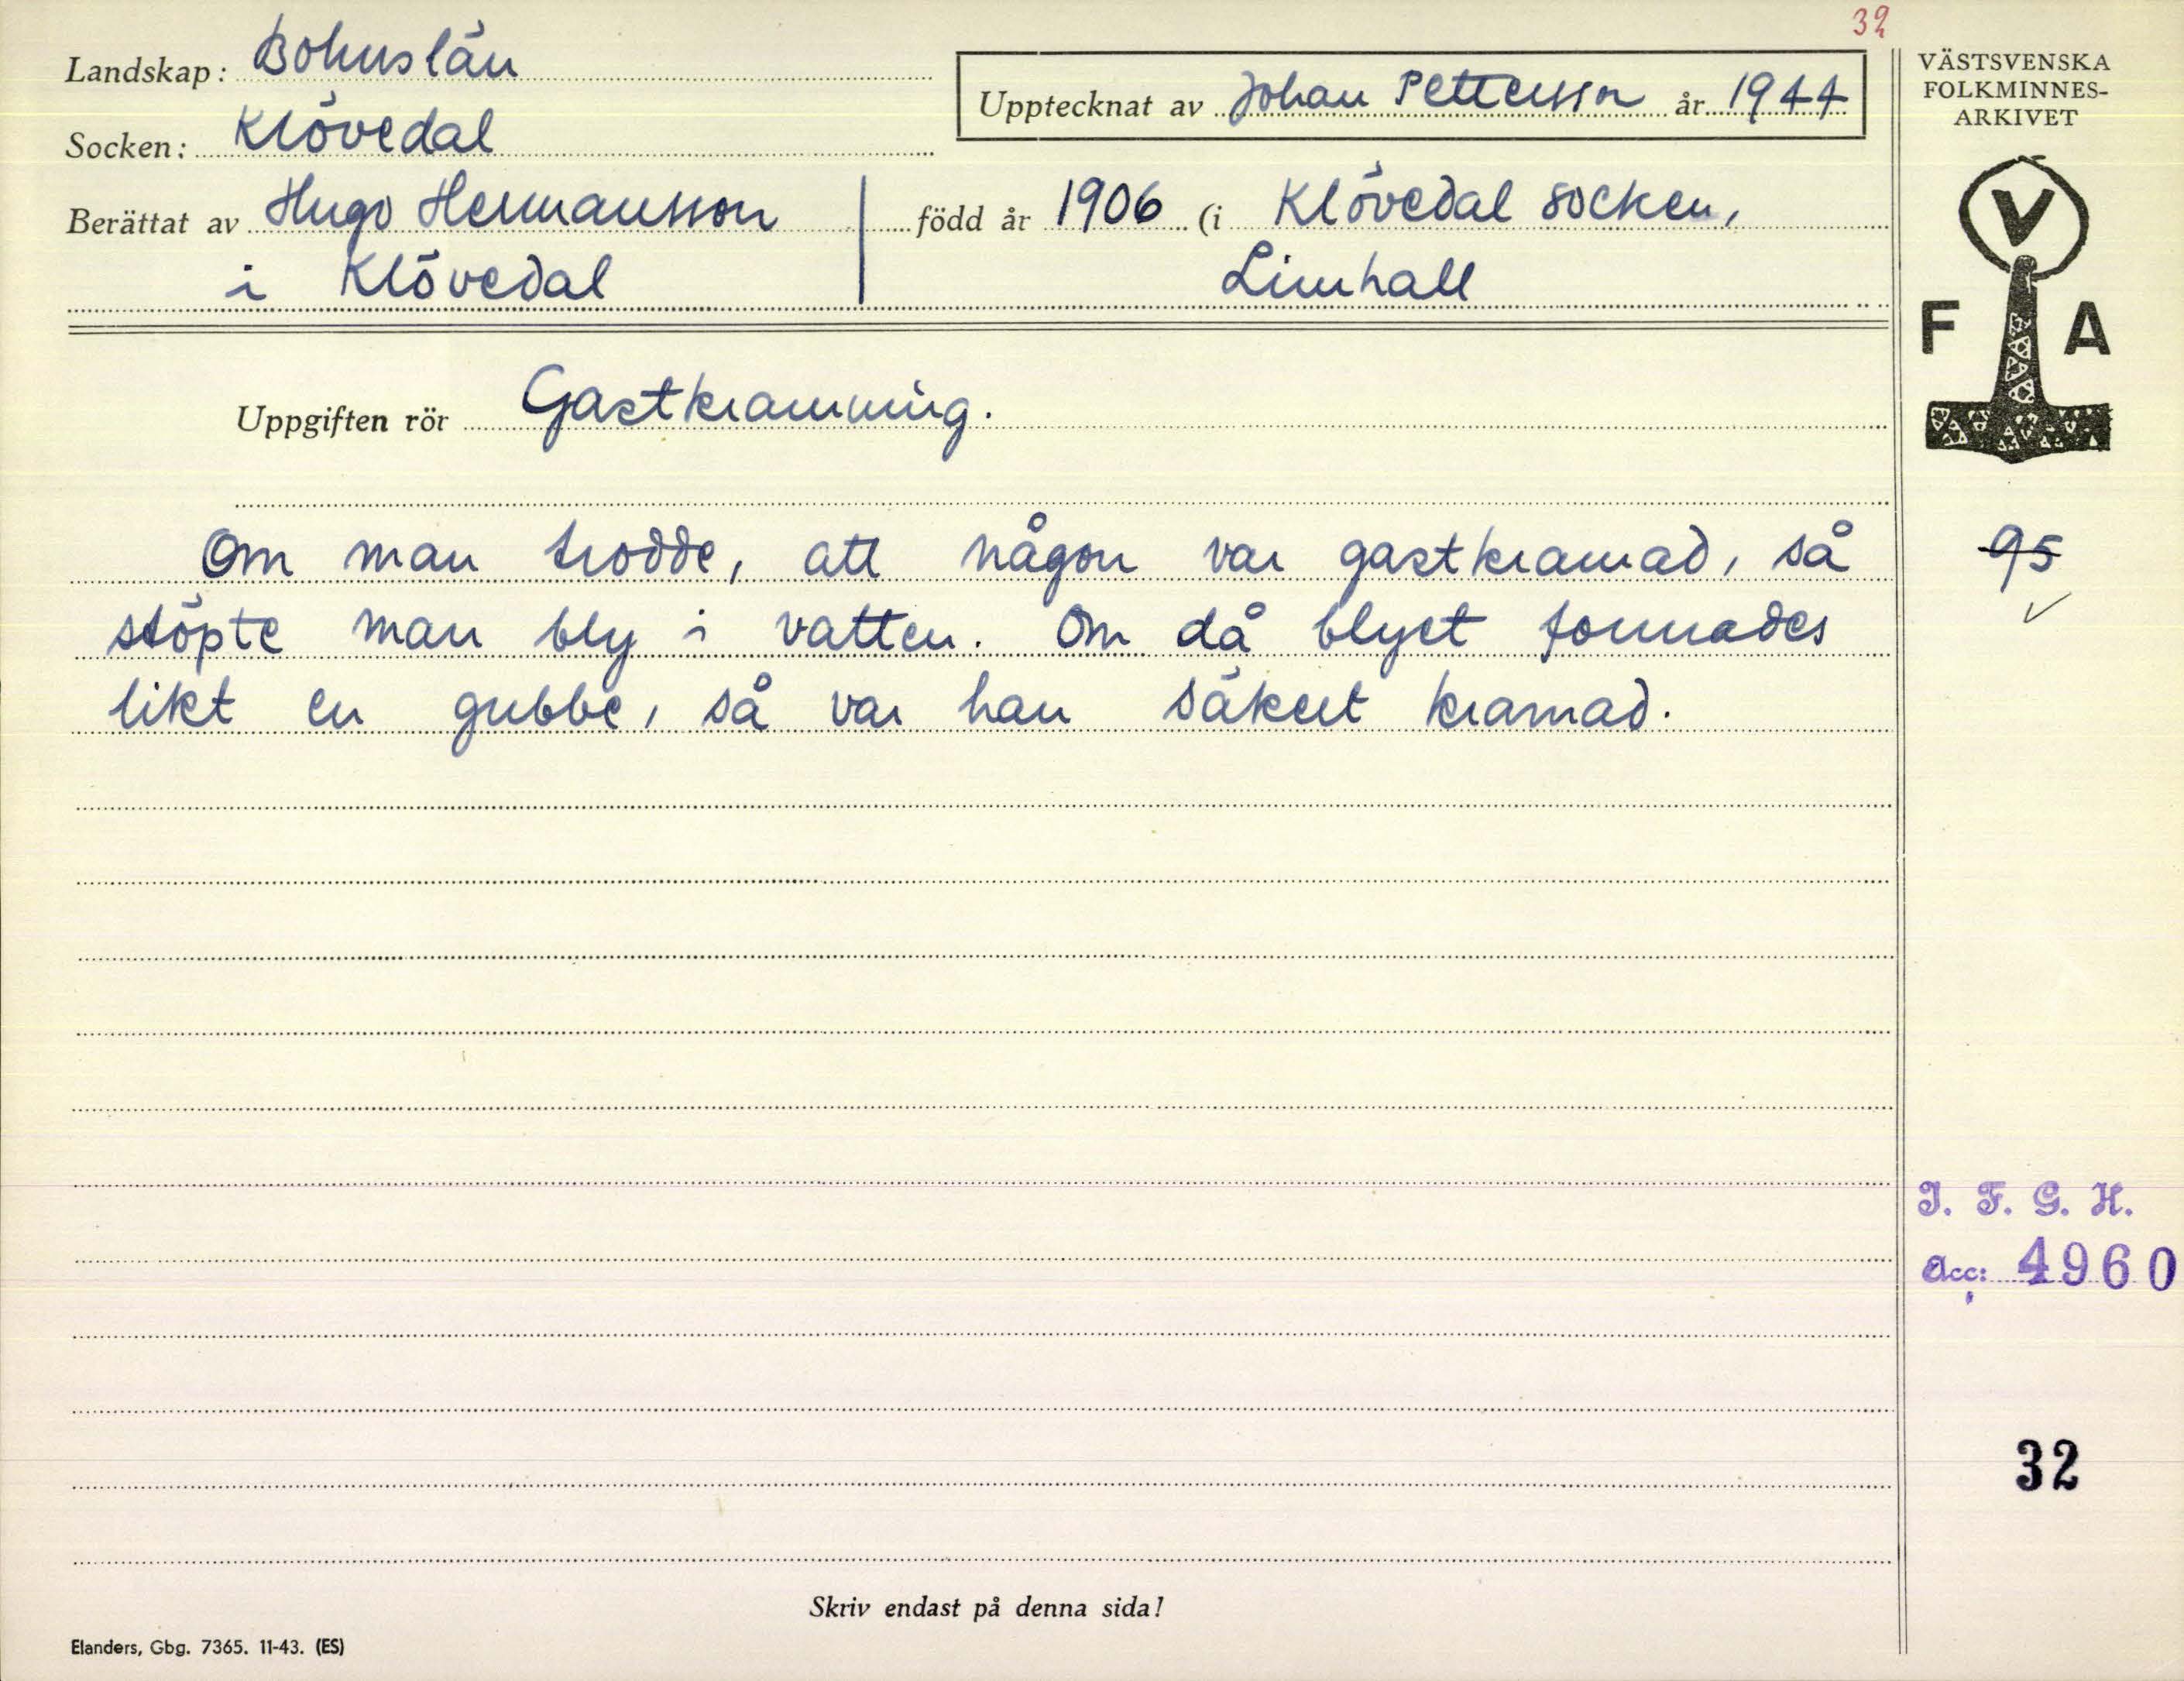 32
Landskap: Bohuslän
Upptecknat av Johan Pettersson år 1944
Socken: Klövedal
Berättat av Hugo Hermansson född år 1906 (i Klövedal socken,
i Klövedal Limhall
Uppgiften rör Gastkramning.
Om man trodde, att någon var gastkramad, så
stöpte man bly i vatten. Om då blyet formades
likt en gubbe, så var han säkert kramad.
Skriv endast på denna sida!
Elanders, Gbg. 7365. 11-43. (ES)
VÄSTSVENSKA
FOLKMINNES-
ARKIVET
V
F A
95
I. F. G. H.
Acc: 4960
32